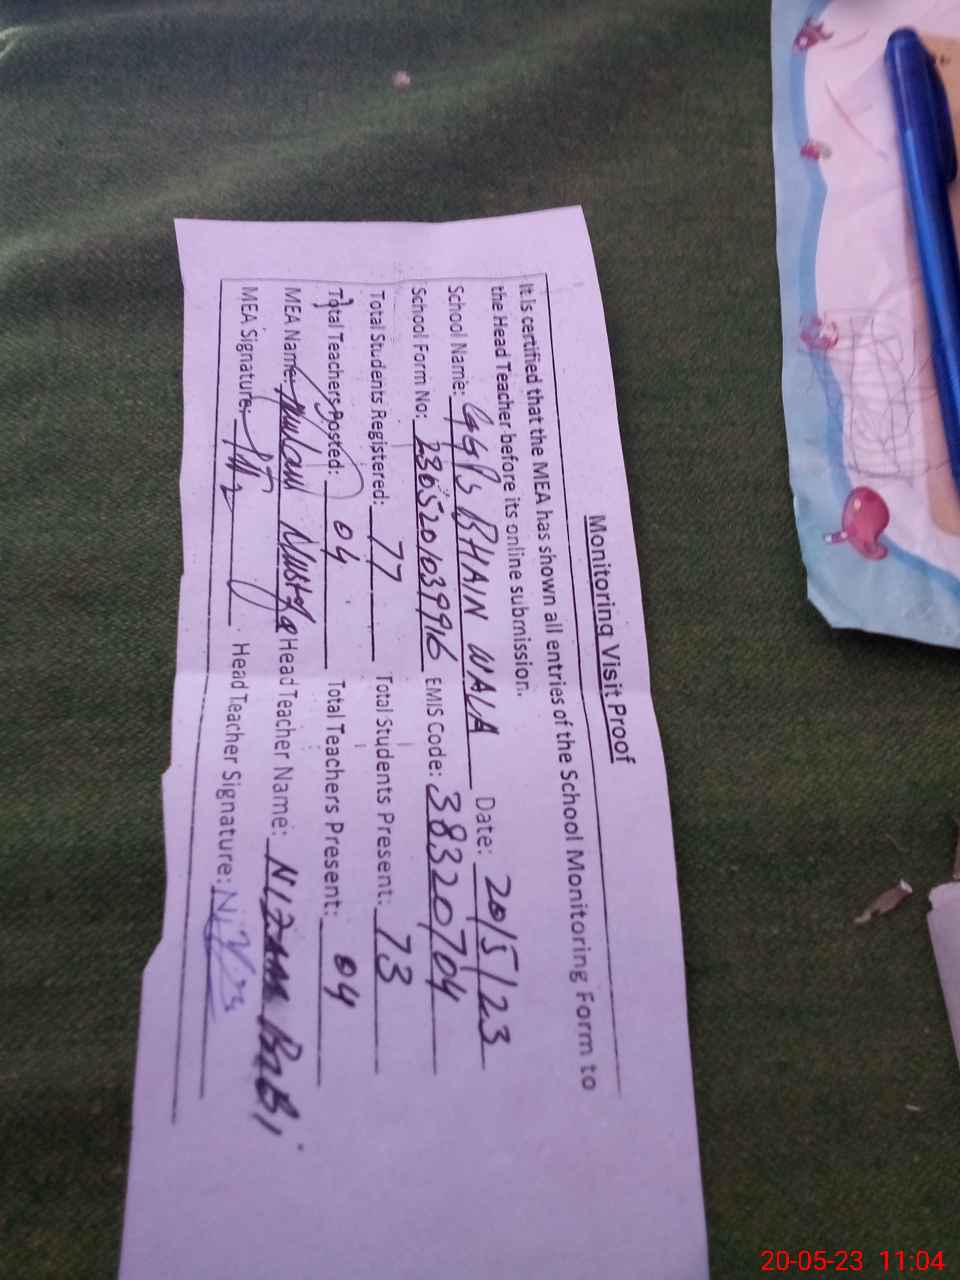 Monitoring Visit Proof
It is certified that the MEA has shown all entries of the School Monitoring Form to
the Head Teacher before its online submission.
School Name: GGPS BHAIN WALA Date: 20/5/23
School Form No: 2305201039916 EMIS Code: 38320704
Total Students Registered: 77 Total Students Present: 73
Total Teachers Posted: 04 Total Teachers Present: 04
MEA Name: Ghulam Mustafa Head Teacher Name: NIZAM BABI
MEA Signature: Head Teacher Signature:
20-05-23 11:04